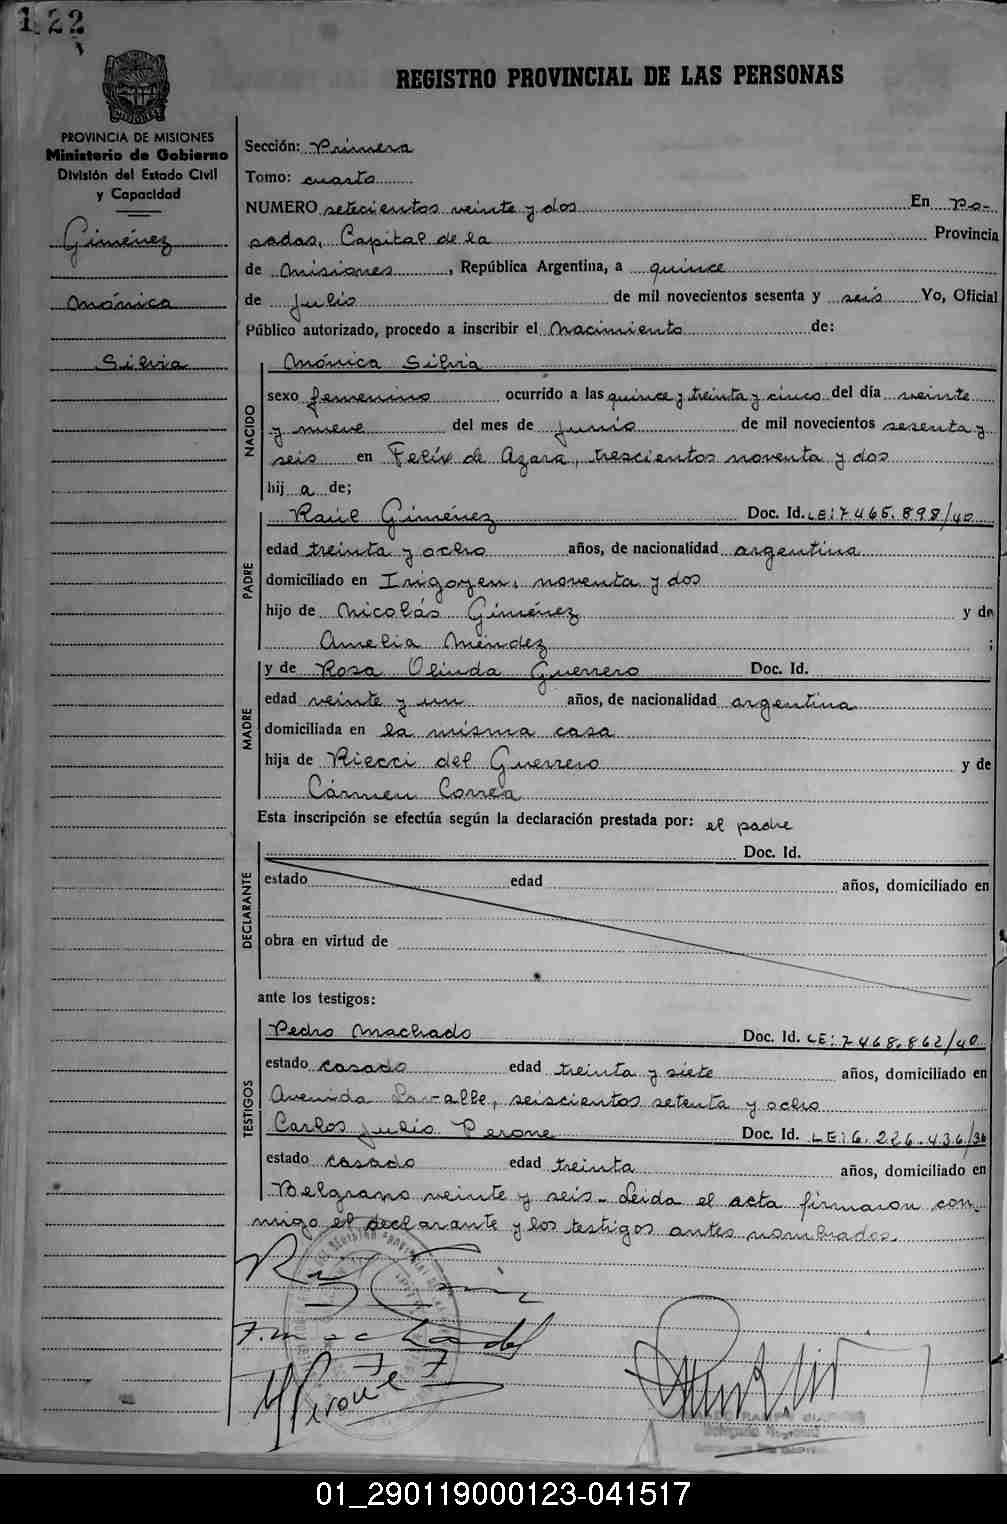 122
REGISTRO PROVINCIAL DE LAS PERSONAS
PROVINCIA DE MISIONES
Ministerio de Gobierno
División del Estado Civil
y Capacidad
Giménez
Mónica
Silvia
Sección: Primera
Tomo: cuarto
NUMERO setecientos veinte y dos En Po-
sadas, Capital de la Provincia
de Misiones, República Argentina, a quince
de Julio de mil novecientos sesenta y seis Yo, Oficial
Público autorizado, procedo a inscribir el Nacimiento de:
NACIDO
Mónica Silvia
sexo femenino ocurrido a las quince y treinta y cinco del día veinte
y nueve del mes de Junio de mil novecientos sesenta y
seis en Felix de Azara, trescientos noventa y dos
hij a de;
PADRE
Raúl Giménez Doc. Id. LE: 7.465.898/40
edad treinta y ocho años, de nacionalidad argentina
domiciliado en Irigoyen, noventa y dos
hijo de Nicolás Giménez y de
Amelia Méndez ;
MADRE
y de Rosa Olinda Guerrero Doc. Id.
edad veinte y un años, de nacionalidad argentina
domiciliada en la misma casa
hija de Riecci del Guerrero y de
Cármen Correa
Esta inscripción se efectúa según la declaración prestada por: el padre
DECLARANTE
Doc. Id.
estado edad años, domiciliado en
obra en virtud de
ante los testigos:
TESTIGOS
Pedro Machado Doc. Id. LE: 7.468.862/40
estado casado edad treinta y siete años, domiciliado en
Avenida Lavalle, seiscientos setenta y ocho
Carlos Julio Perone Doc. Id. LE: 6.226.436/36
estado casado edad treinta años, domiciliado en
Belgrano veinte y seis_ Leida el acta firmaron con-
migo el declarante y los testigos antes nombrados.
01_290119000123-041517